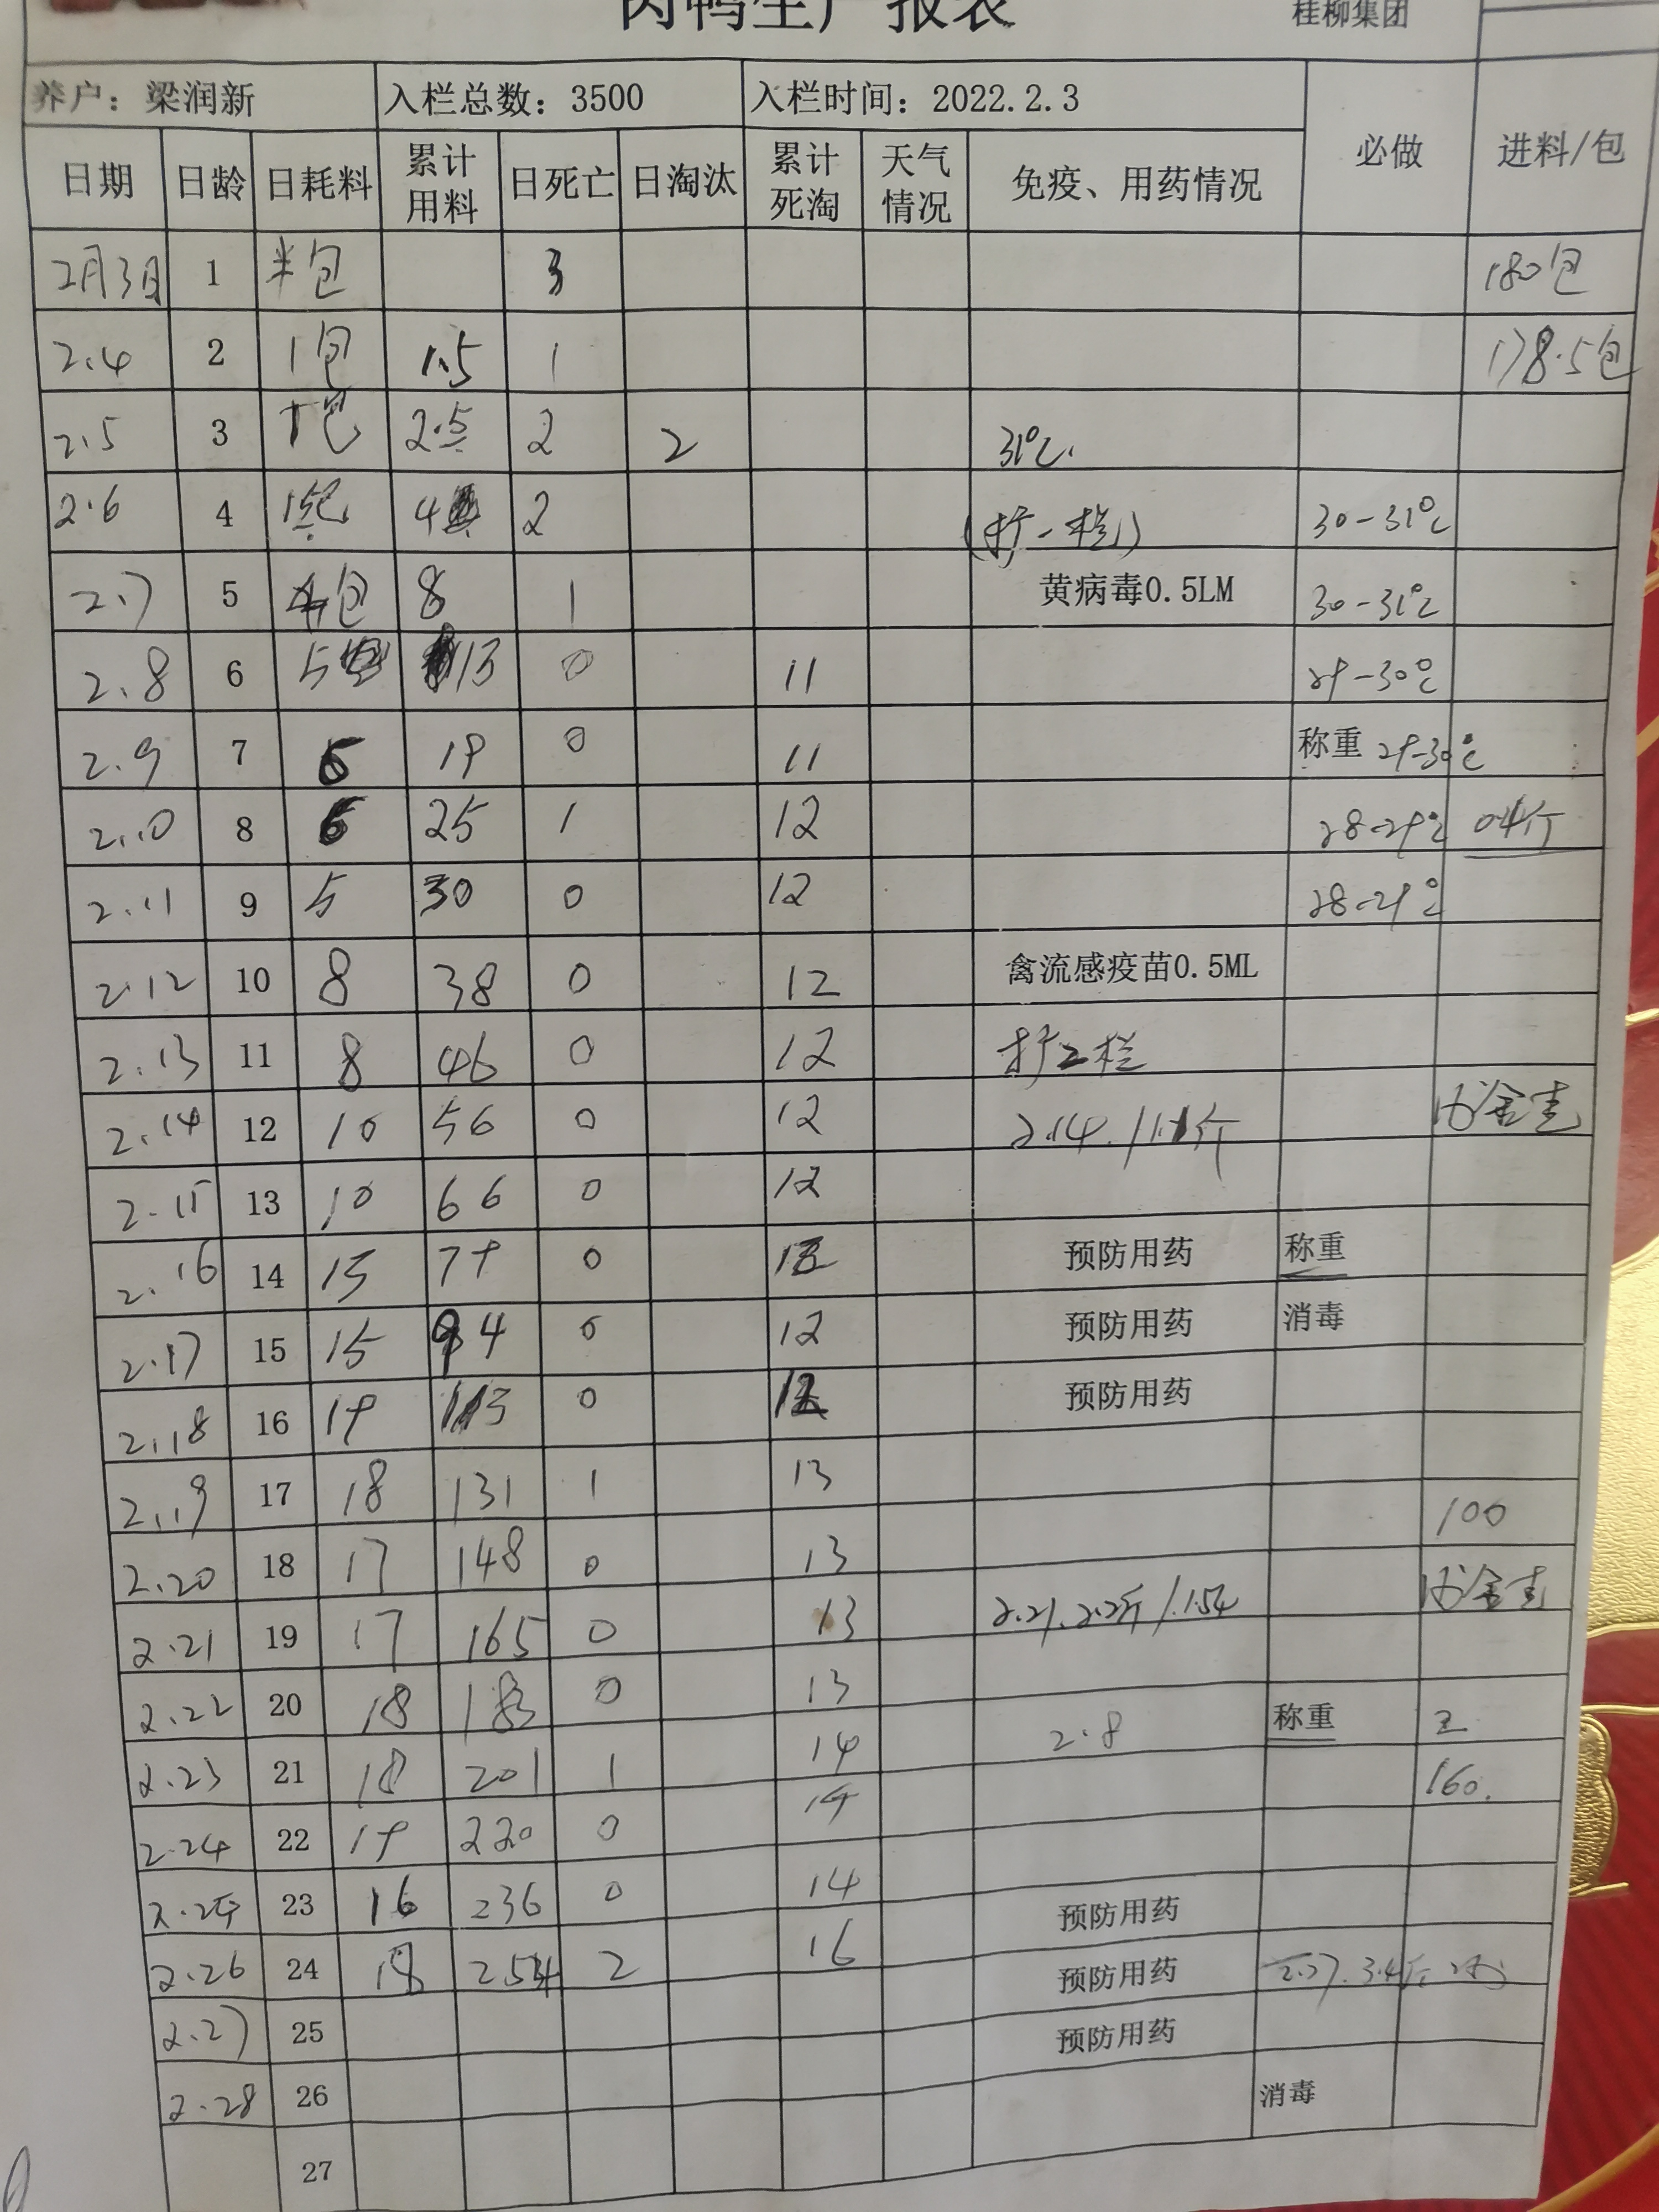 肉鸭生产报表 桂柳集团
养户：梁润新 入栏总数：3500 入栏时间：2022.2.3 必做 进料/包
日期 日龄 日耗料 累计用料 日死亡 日淘汰 累计死淘 天气情况 免疫、用药情况
2月3日 1 半包 3 180包
2.4 2 1包 1.5 1 178.5包
2.5 3 1包 2.5 2 2 31℃.
2.6 4 4 2 (扩一栏) 30-31℃
2.7 5 4包 8 1 黄病毒0.5LM 30-31℃
2.8 6 5 13 0 11 29-30℃
2.9 7 6 19 0 11 称重 29-30℃
2.10 8 6 25 1 12 28-29℃ 0.4斤
2.11 9 5 30 0 12 28-29℃
2.12 10 8 38 0 12 禽流感疫苗0.5ML
2.13 11 8 46 0 12 扩2栏
2.14 12 10 56 0 12 2.14. 1.1斤
2.15 13 10 66 0 12
2.16 14 13 79 0 12 预防用药 称重
2.17 15 15 94 0 12 预防用药 消毒
2.18 16 19 113 0 12 预防用药
2.19 17 18 131 1 13 100
2.20 18 17 148 0 13
2.21 19 17 165 0 13 2.21. 2.2斤/1.54
2.22 20 18 183 0 13 称重
2.23 21 18 201 1 14 2.8 160.
2.24 22 19 220 0 14
2.25 23 16 236 0 14 预防用药
2.26 24 18 254 2 16 预防用药 2.27. 3.4斤
2.27 25 预防用药
2.28 26 消毒
27